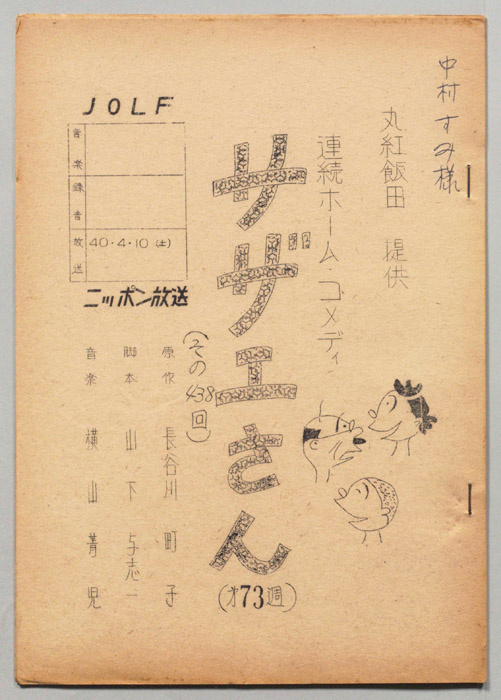 中村すみ様
丸紅飯田 提供
連続ホーム・コメディ
サザエさん
(その438回)
(才73週)
JOLF
音楽
録音
放送 40・4・10(土)
ニッポン放送
原作 長谷川町子
脚本 山下与志一
音楽 横山菁児